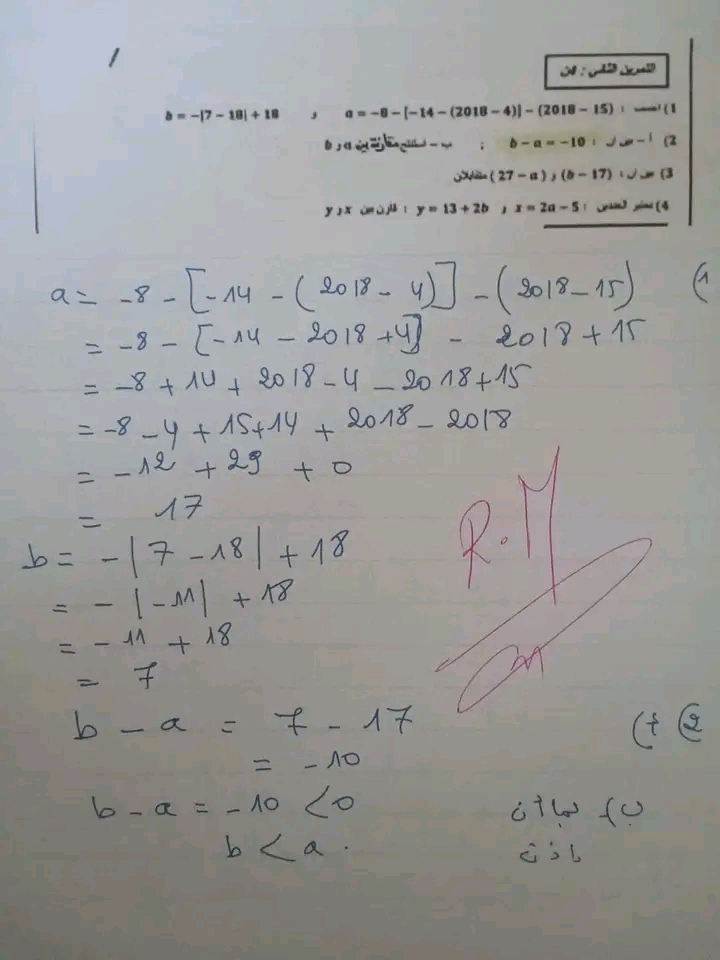 التمرين الثاني : لكن
1) احسب : a = −8 − [−14 − (2018 − 4)] − (2018 − 15) و b = −|7 − 18| + 18
2) أ – b − a = −10 ; ب – استنتج مقارنة بين a و b
3) (b − 17) و (27 − a) متقابلان
4) x = 2a − 5 و y = 13 + 2b : قارن بين x و y
1) a = -8 - [-14 - (2018 - 4)] - (2018 - 15)
= -8 - [-14 - 2018 + 4] - 2018 + 15
= -8 + 14 + 2018 - 4 - 2018 + 15
= -8 - 4 + 15 + 14 + 2018 - 2018
= -12 + 29 + 0
= 17
b = -|7 - 18| + 18
= -|-11| + 18
= -11 + 18
= 7
R.M
2) أ) b - a = 7 - 17
= -10
ب) بما أن b - a = -10 < 0
إذن b < a .